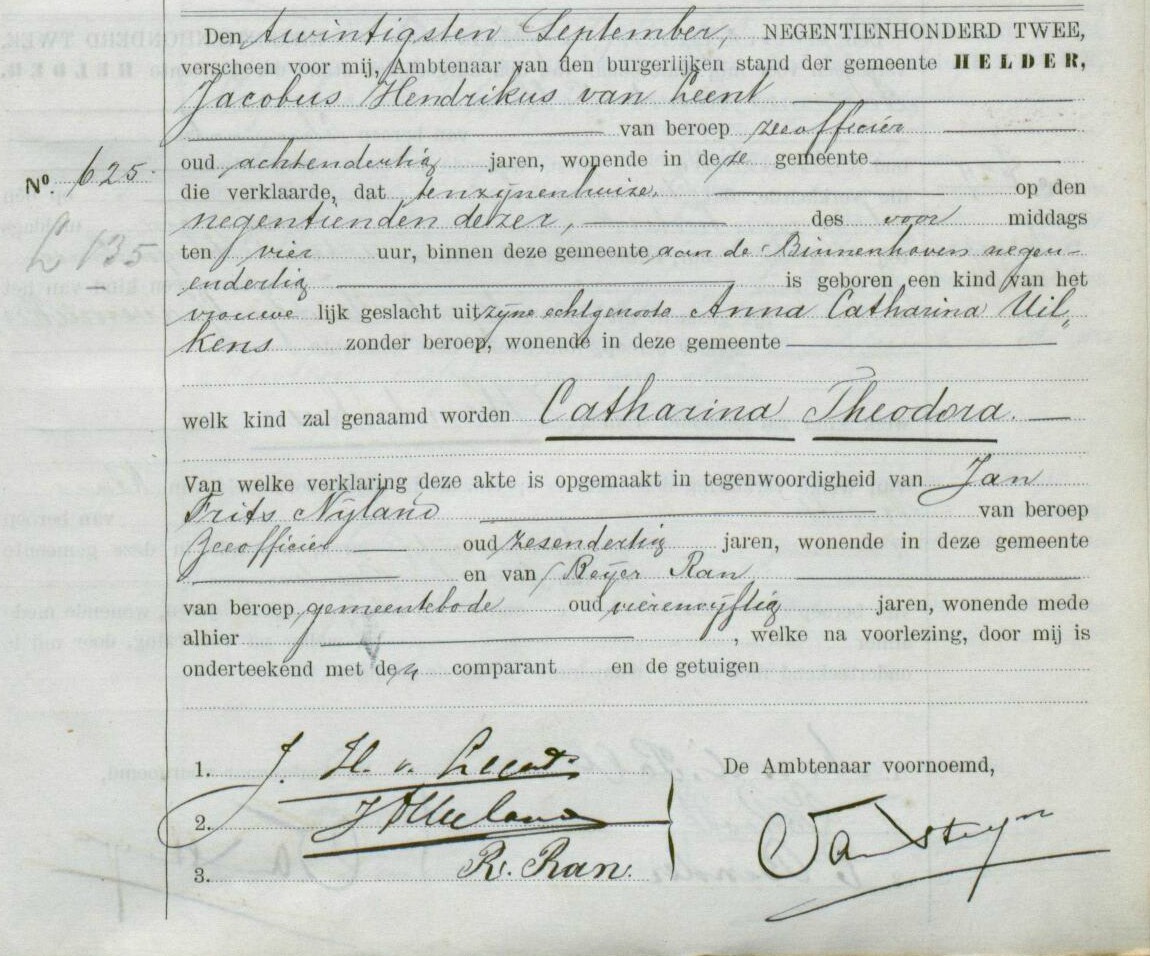 Den twintigsten September, NEGENTIENHONDERD TWEE,
verscheen voor mij, Ambtenaar van den burgerlijken stand der gemeente HELDER,
Jacobus Hendrikus van Leent
van beroep zeeofficier
oud achtendertig jaren, wonende in deze gemeente
No. 625.
die verklaarde, dat tenzijnenhuize, op den
negentienden dezer, des voor middags
L 135
ten vier uur, binnen deze gemeente aan de Binnenhaven negen-
endertig is geboren een kind van het
vrouwe lijk geslacht uit zijne echtgenoote Anna Catharina Uil„
kens zonder beroep, wonende in deze gemeente
welk kind zal genaamd worden Catharina Theodora.
Van welke verklaring deze akte is opgemaakt in tegenwoordigheid van Jan
Frits Nyland van beroep
Zeeofficier oud zesendertig jaren, wonende in deze gemeente
en van Reijer Ran
van beroep gemeentebode oud vierenvijftig jaren, wonende mede
alhier , welke na voorlezing, door mij is
onderteekend met den comparant en de getuigen
1. J. H. v. Leent De Ambtenaar voornoemd,
2.
3. R. Ran.